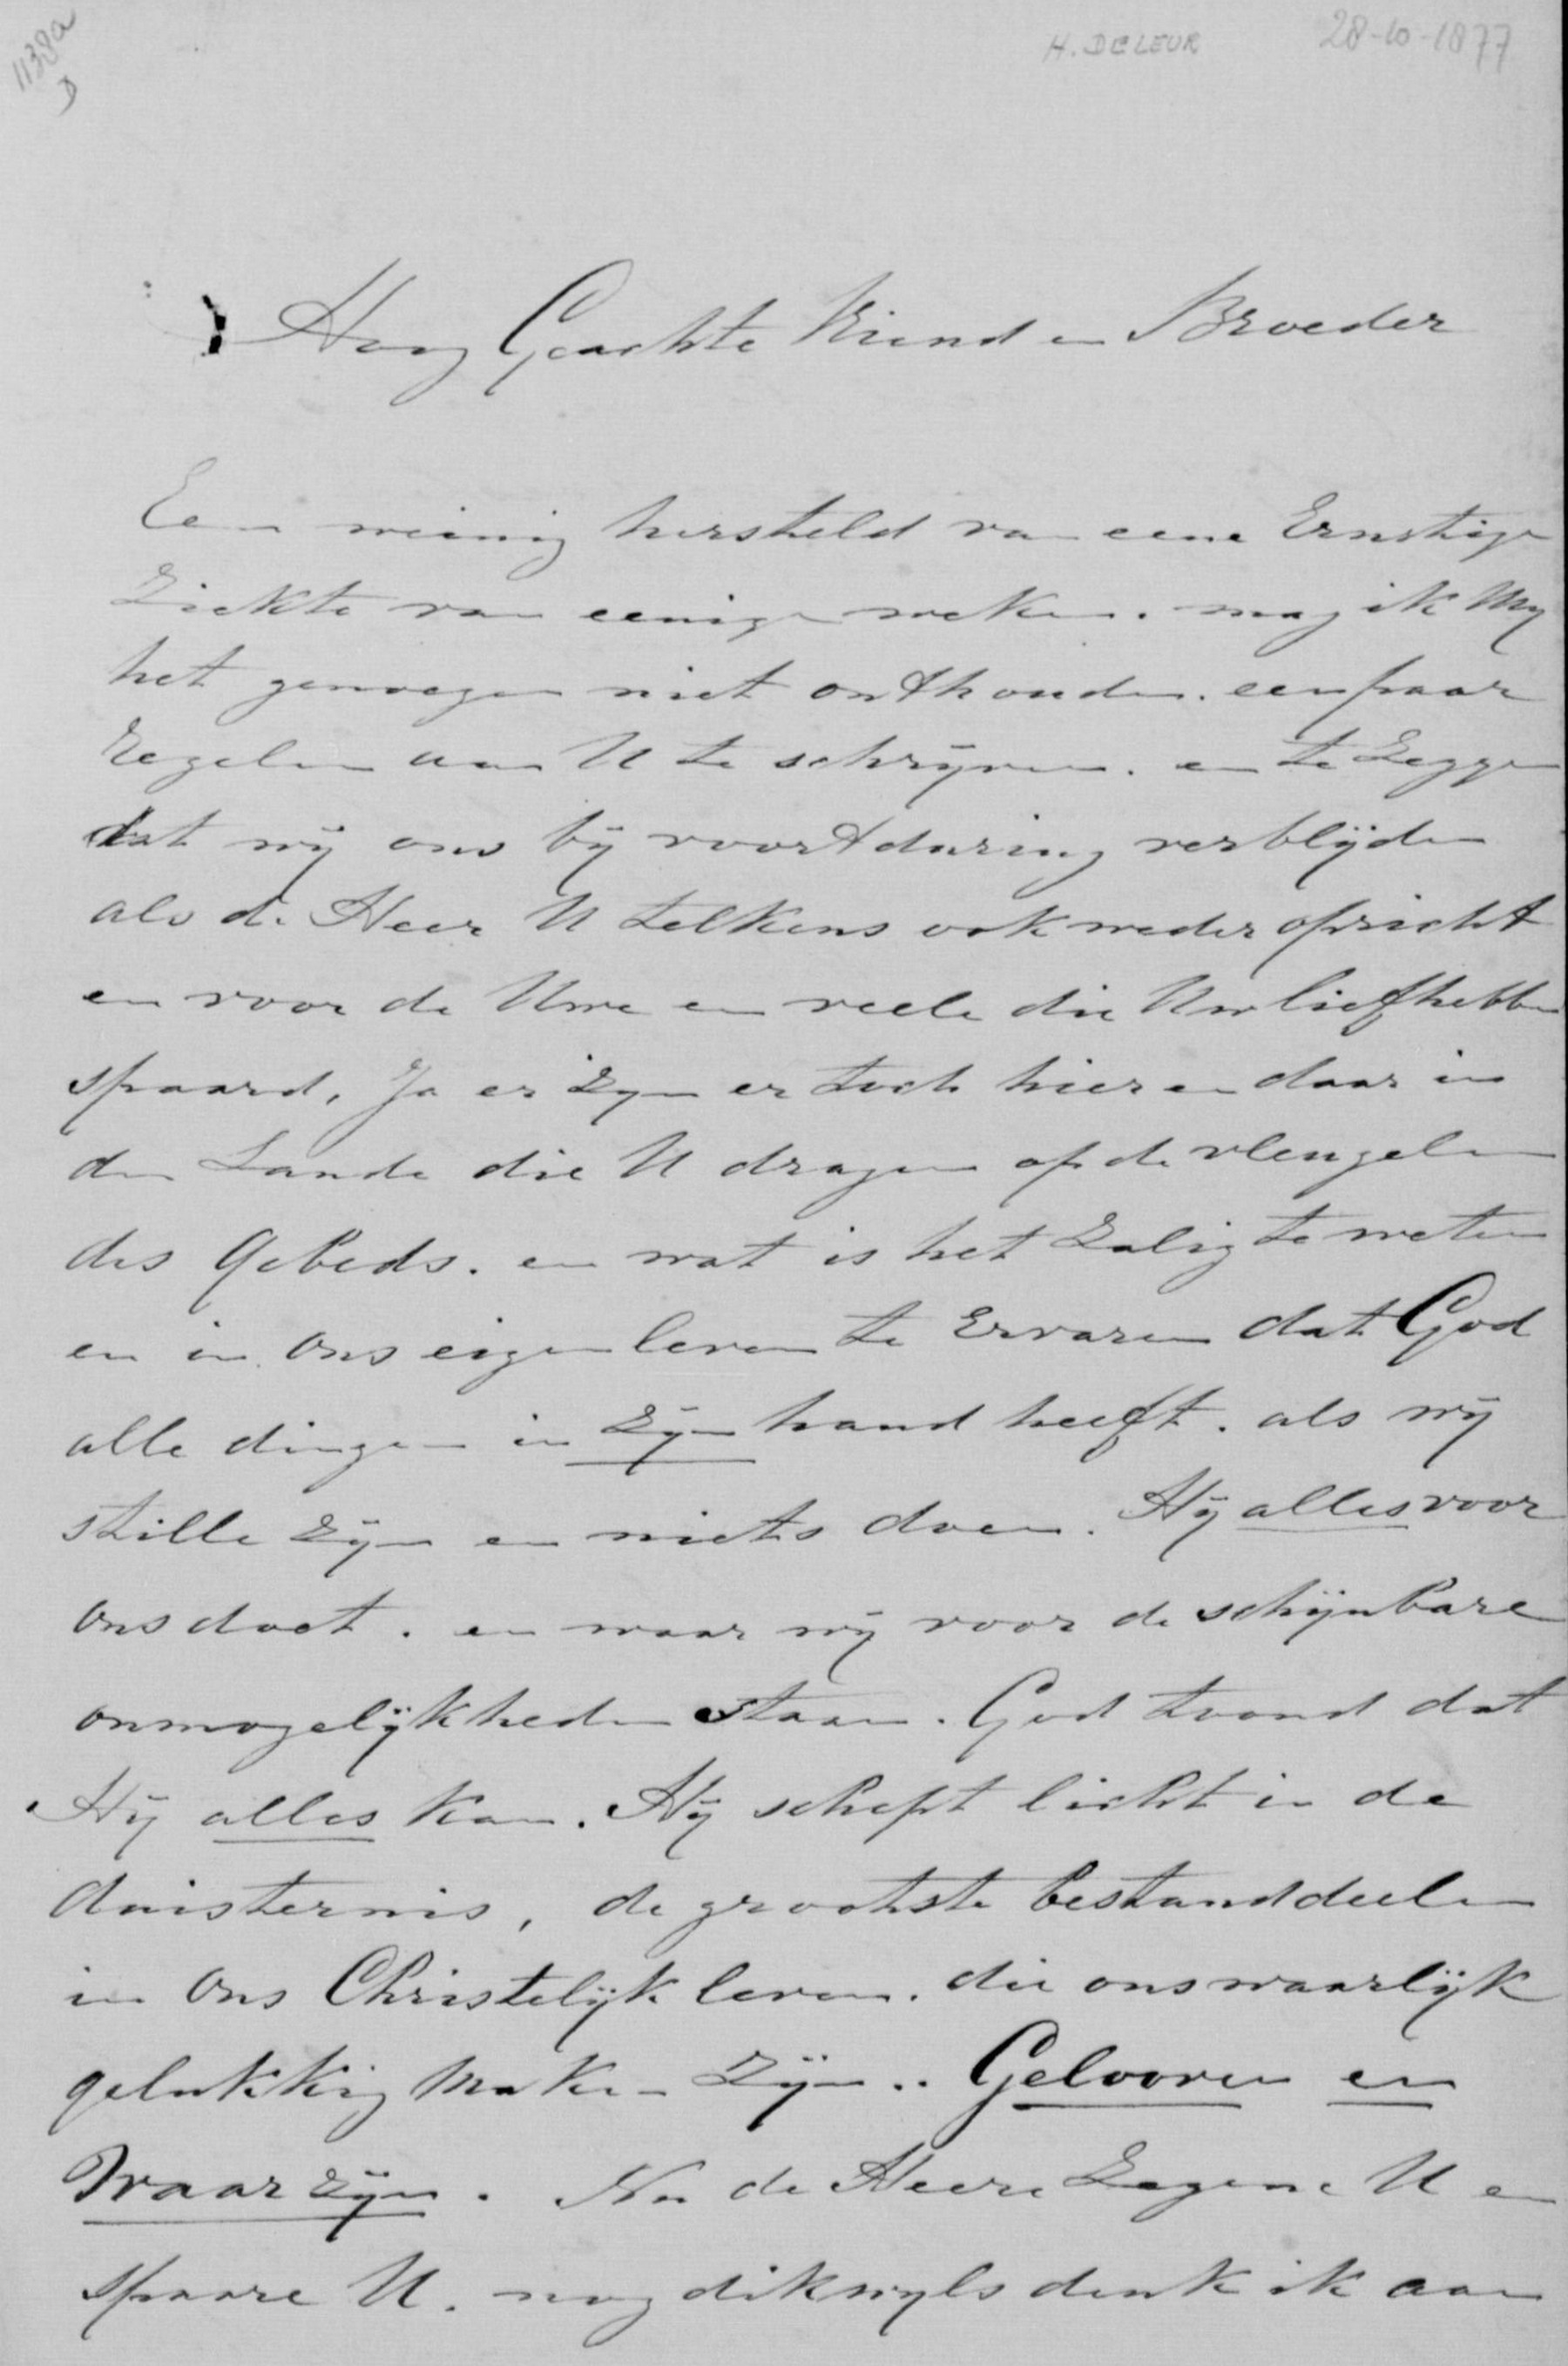 1138a
D
H. DELEUR 28-10-1877
Hoog Geachte Vriend en Broeder
Een weinig hersteld van eene Ernstige
Ziekte van eenige weken. mag ik My
het genoegen niet onthouden. een paar
Regelen aan U te schrijven. en te Zeggen
dat wij ons bij voortduring verblijden
als de Heer U telkens ook weder opricht
en voor de Uwe en veele die Uw liefhebben
spaard, Ja er zijn er toch hier en daar in
den Lande die U dragen op de vleugelen
des Gebeds. en wat is het Zalig te weten
en in ons eigen leven te Ervaren dat God
alle dingen in Zijn hand heeft. als wij
stille zijn en niets doen. Hij alles voor
ons doet. en waar wij voor de schijnbare
onmogelijkheden staan. God toond dat
Hij alles kan. Hij schept licht in de
duisternis, de grootste bestanddeelen
in ons Christelijk leven. die ons waarlijk
gelukkig maken zijn.. Gelooven en
Waar zijn. Nu de Heere Zegene U en
spaare U. nog dikwyls denk ik aan